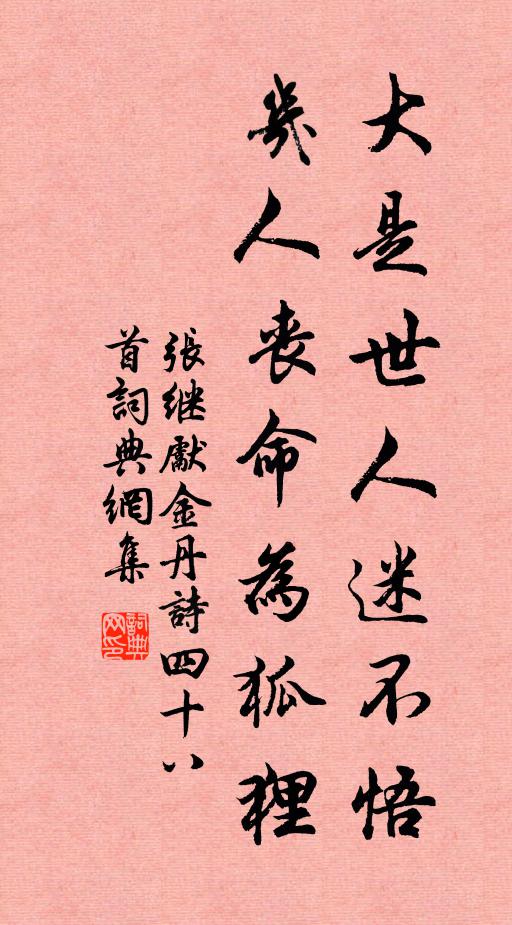 大是世人迷不悟
幾人丧命為狐狸
張继獻金丹詩四十八
首詞典網集
詞典
网印